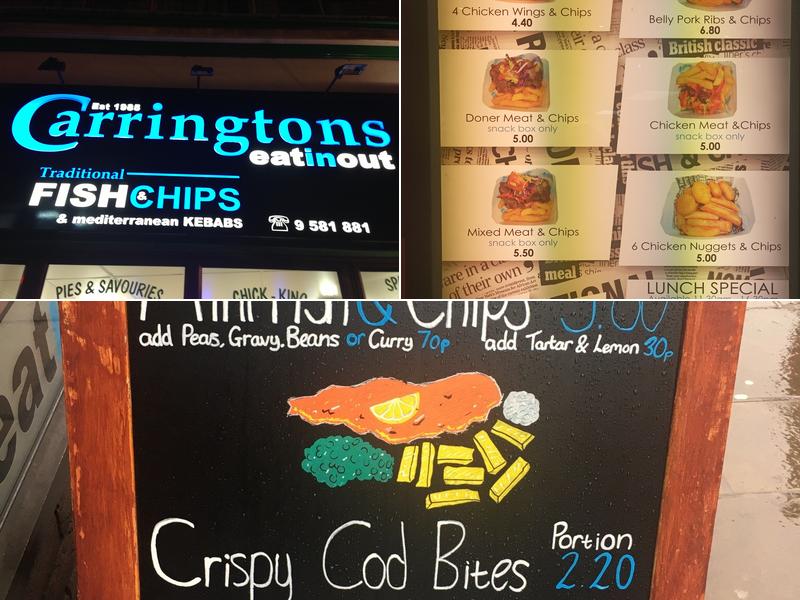 Est 1988
Carringtons
eatinout
Traditional
FISH & CHIPS
& mediterranean KEBABS
9 581 881
PIES & SAVOURIES
CHICK - KING
4 Chicken Wings & Chips
4.40
Belly Pork Ribs & Chips
6.80
class
British classic
Doner Meat & Chips
snack box only
5.00
Chicken Meat &Chips
snack box only
5.00
Mixed Meat & Chips
snack box only
5.50
6 Chicken Nuggets & Chips
5.00
are in a
of their own
meal
LUNCH SPECIAL
Mini Fish & Chips 5.00
add Peas, Gravy, Beans or Curry 70p
add Tartar & Lemon 30p
eat
Crispy Cod Bites
Portion
2.20